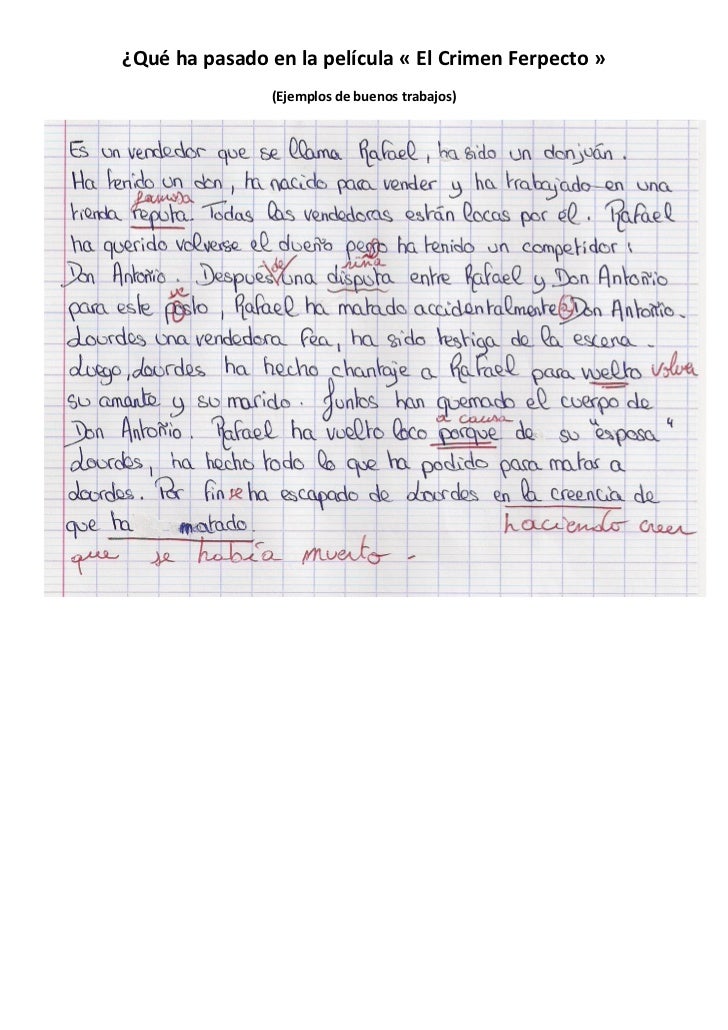 ¿Qué ha pasado en la película « El Crimen Ferpecto »
(Ejemplos de buenos trabajos)
Es un vendedor que se llama Rafael, ha sido un donjuán.
Ha tenido un don, ha nacido para vender y ha trabajado en una
famosa
tienda reputa. Todas las vendedoras están locas por él. Rafael
ha querido volverse el dueño pero ha tenido un competidor :
de riña
Don Antonio. Después una disputa entre Rafael y Don Antoñio
ue
para este posto, Rafael ha matado accidentalmente a Don Antoñio.
Lourdes una vendedora fea, ha sido testiga de la escena.
Luego, Lourdes ha hecho chantaje a Rafael para welto volver
su amante y su marido. Juntos han quemado el cuerpo de
a causa
Don Antoñio. Rafael ha vuelto loco porque de su "esposa"
Lourdes, ha hecho todo lo que ha podido para matar a
Lourdes. Por fin se ha escapado de Lourdes en la creencia de
que ha matado. haciendo creer
que se había muerto.